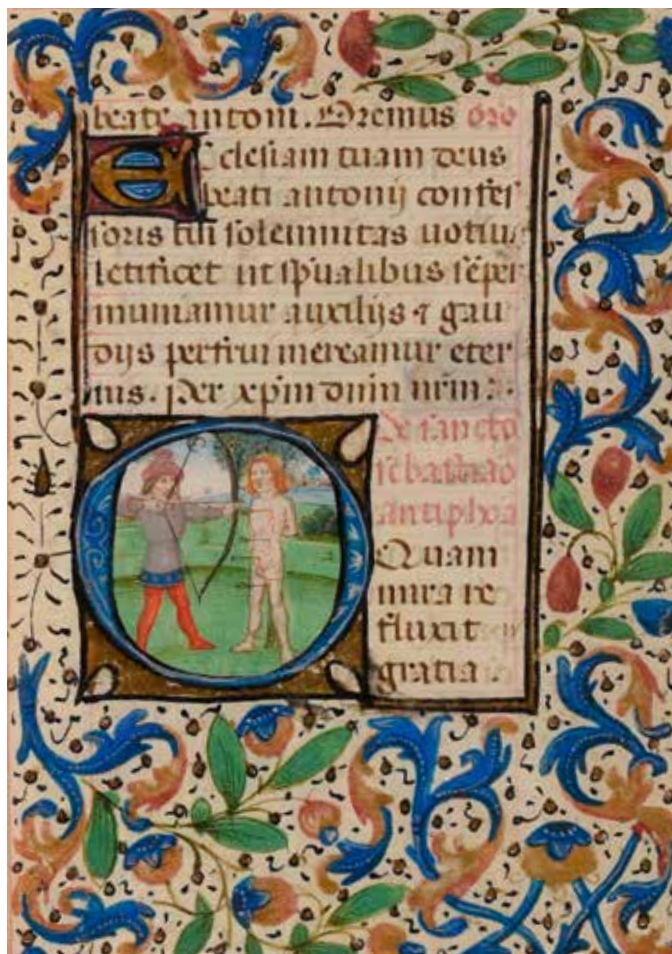 beate antoni. Oremus oro
Ecclesiam tuam deus
beati antonij confes
soris tui solemnitas uotiua
letificet ut sp̃ualibus sẽper
muniamur auxilijs ⁊ gau
dijs perfrui mereamur eter
nis. Per xp̃m dñm nr̃m.
De sancto
sebastiao
antiphoa
O Quam
mira re
fluxit
gratia